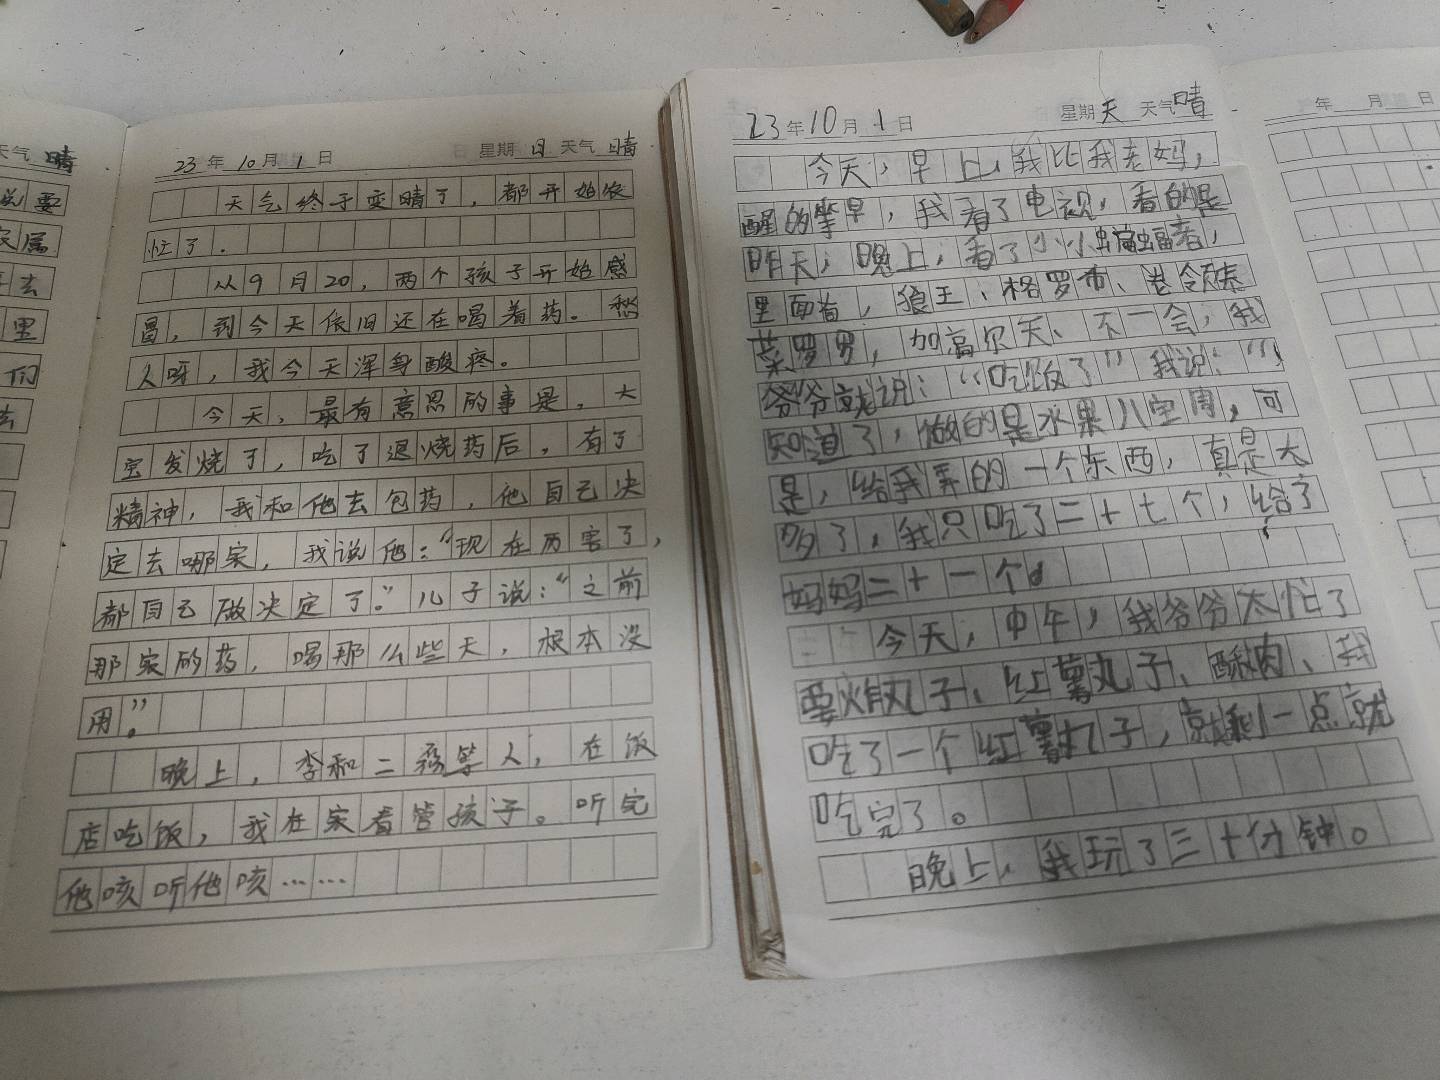 天气 晴
说要
家属
去
里
们
去
23年10月1日 星期日 天气晴
天气终于变晴了，都开始农
忙了．
从9月20，两个孩子开始感
冒，到今天依旧还在喝着药。愁
人呀，我今天浑身酸疼。
今天，最有意思的事是，大
宝发烧了，吃了退烧药后，有了
精神，我和他去包药，他自己决
定去哪家，我说他：“现在厉害了，
都自己做决定了。”儿子说：“之前
那家的药，喝那么些天，根本没
用。”
晚上，李和二孩等人，在饭
店吃饭，我在家看管孩子。听完
他咳听他咳……
23年10月1日 星期天 天气晴
今天，早上，我比我老妈，
醒的早，我看了电视，看的是
昨天，晚上，看了小小蝙蝠者，
里面有，狼王、格罗布、
菜罗罗，加高尔天、不一会，我
爷爷就说：“吃饭了”我说：“
知道了，做的是水果八宝周，可
是，给我弄的一个东西，真是太
多了，我只吃了二十七个，给了
妈妈二十一个。
今天，中午，我爷爷太忙了
要火乍丸子、红薯丸子、酥肉、我
吃了一个红薯丸子，就剩一点就
吃完了。
晚上，我玩了三十分钟。
年 月 日